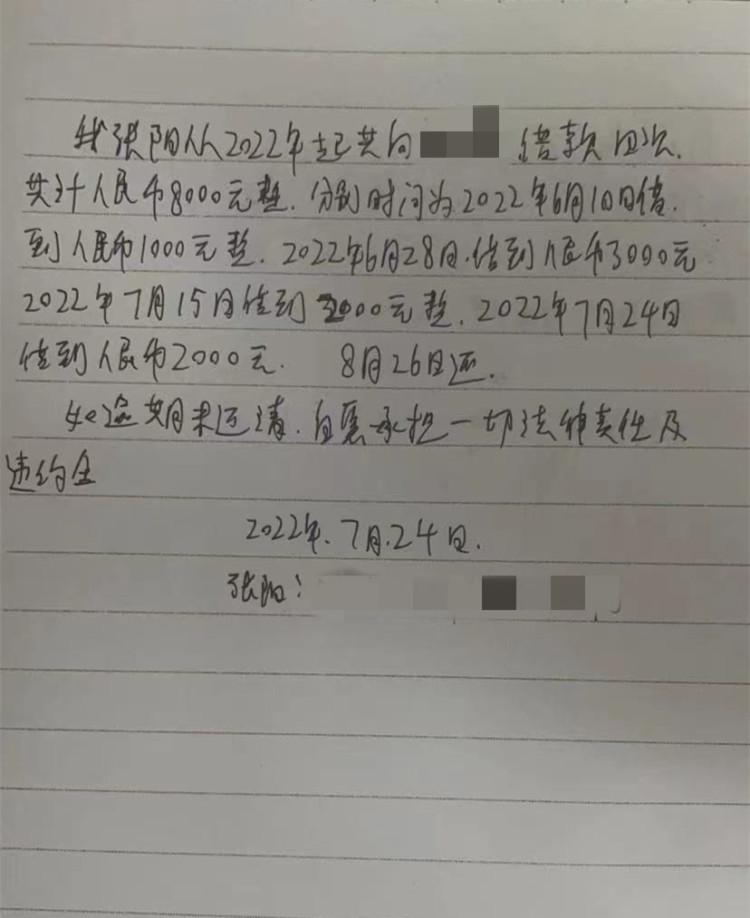 我张阳从2022年起共向 借款四次.
共计人民币8000元整.分别时间为2022年6月10日借.
到人民币1000元整.2022年6月28日.借到人民币3000元
2022年7月15日借到2000元整.2022年7月24日
借到人民币2000元. 8月26日还.
如逾期未还清.自愿承担一切法律责任及
违约金
2022年.7月.24日.
张阳: